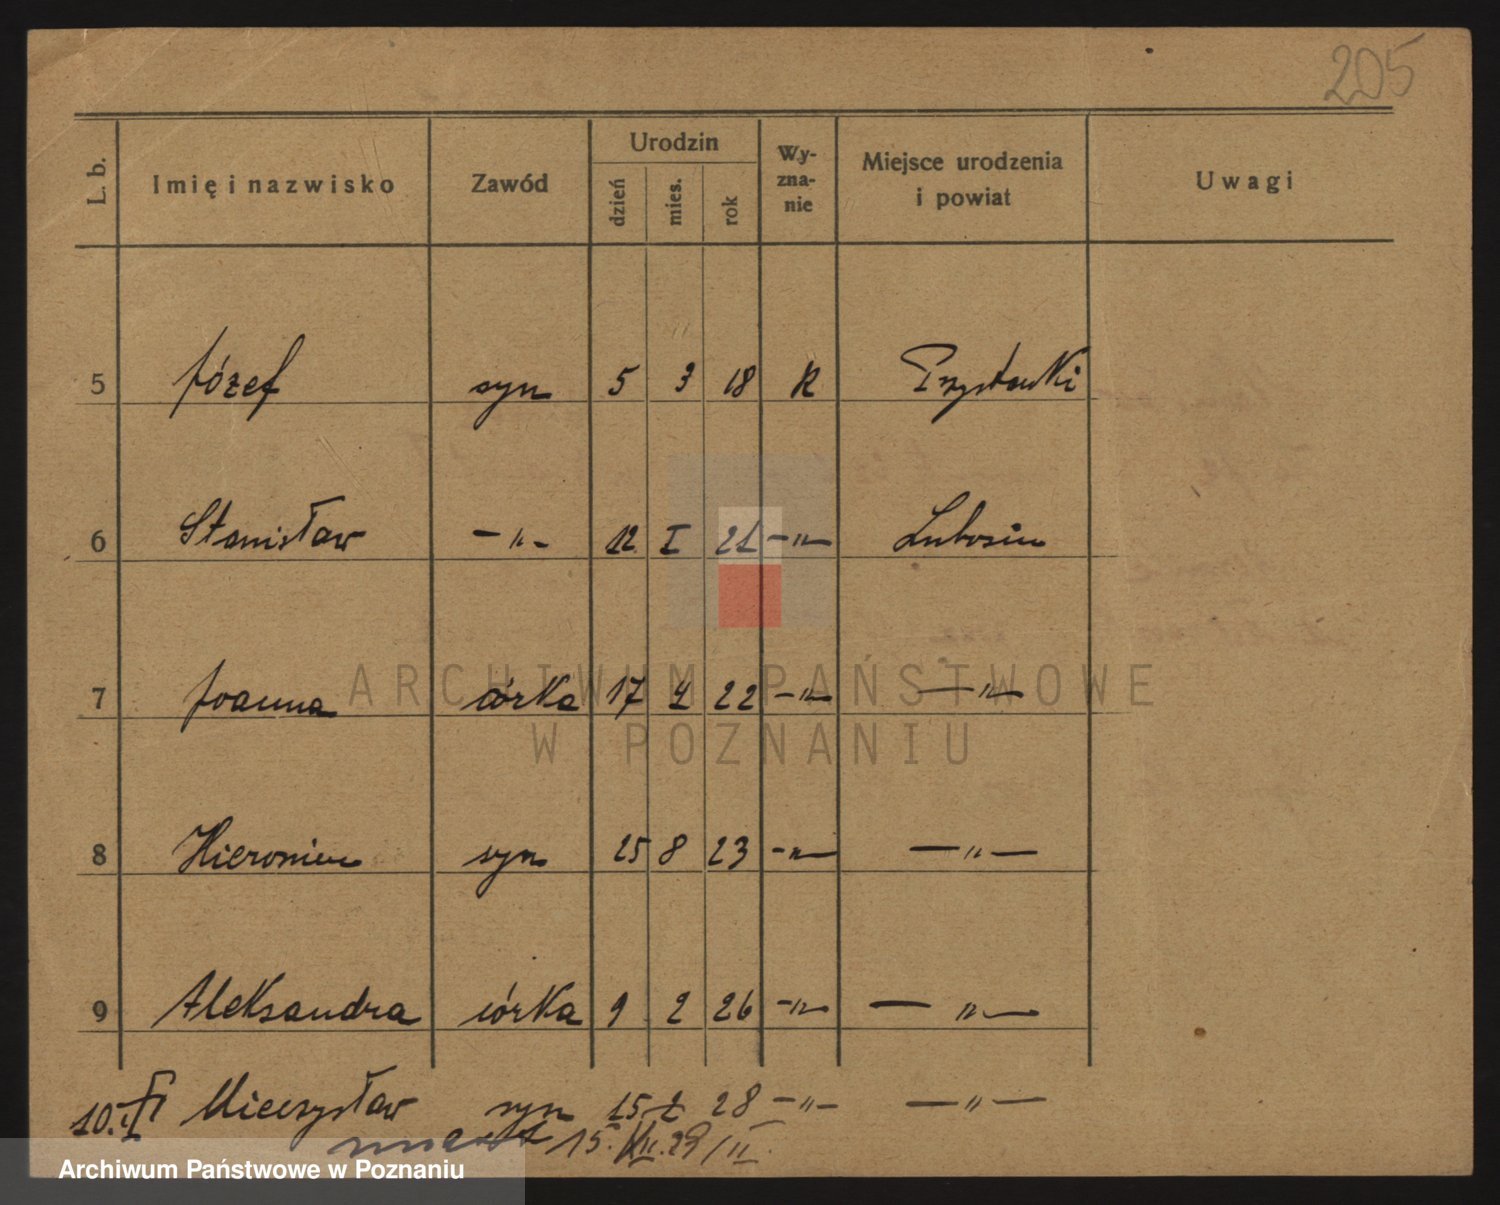 205
L. b. Imię i nazwisko Zawód Urodzin dzień mies. rok Wy-zna-nie Miejsce urodzenia i powiat Uwagi
5 Józef syn 5 3 18 R Przystanki
6 Stanisław —"— 12 I 21 —"— Lubosin
7 Joanna córka 17 4 22 —"— —"—
8 Hieronim syn 25 8 23 —"— —"—
9 Aleksandra córka 9 2 26 —"— —"—
10. Mieczysław syn 15 2 28 —"— —"—
zmarł 15.
ARCHIWUM PAŃSTWOWE
W POZNANIU
Archiwum Państwowe w Poznaniu